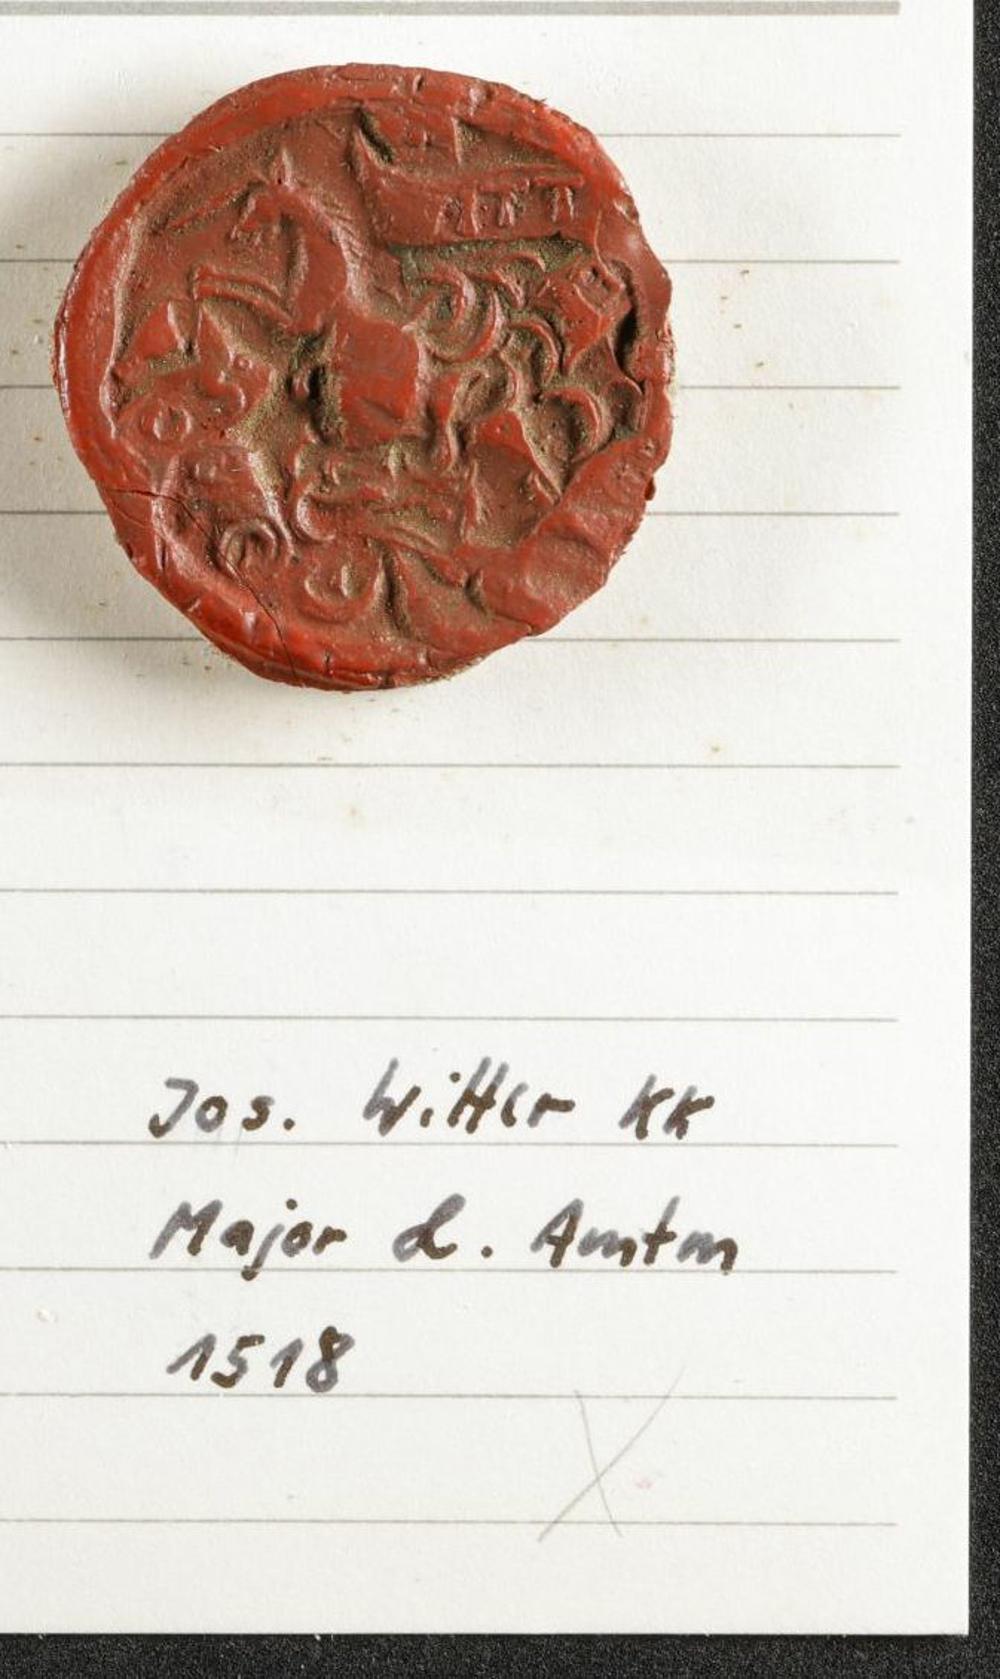 Jos. Witter KK
Major d. Amtm
1518